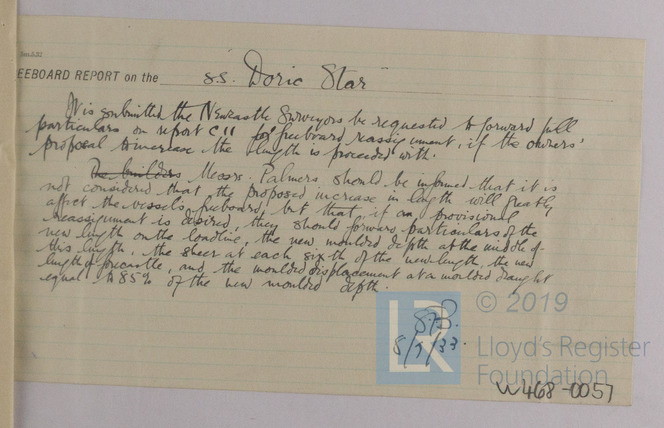 EEBOARD REPORT on the S.S. "Doric Star"
It is submitted the Newcastle Surveyors be requested to forward full
particulars on report C11 for freeboard reassignment, if the owners'
proposal to increase the length is proceeded with.
The builders Messrs. Palmers should be informed that it is
not considered that the proposed increase in length will greatly
affect the vessel's freeboard, but that if a provisional
reassignment is desired, they should forward particulars of the
new length on the loadline, the new moulded depth at the middle of
this length, the sheer at each sixth of the new length, the new
length of forecastle, and the moulded displacement at a moulded draught
equal to 85% of the new moulded depth.
8/9/33.
© 2019
LR
Lloyd's Register
Foundation
W468-0057